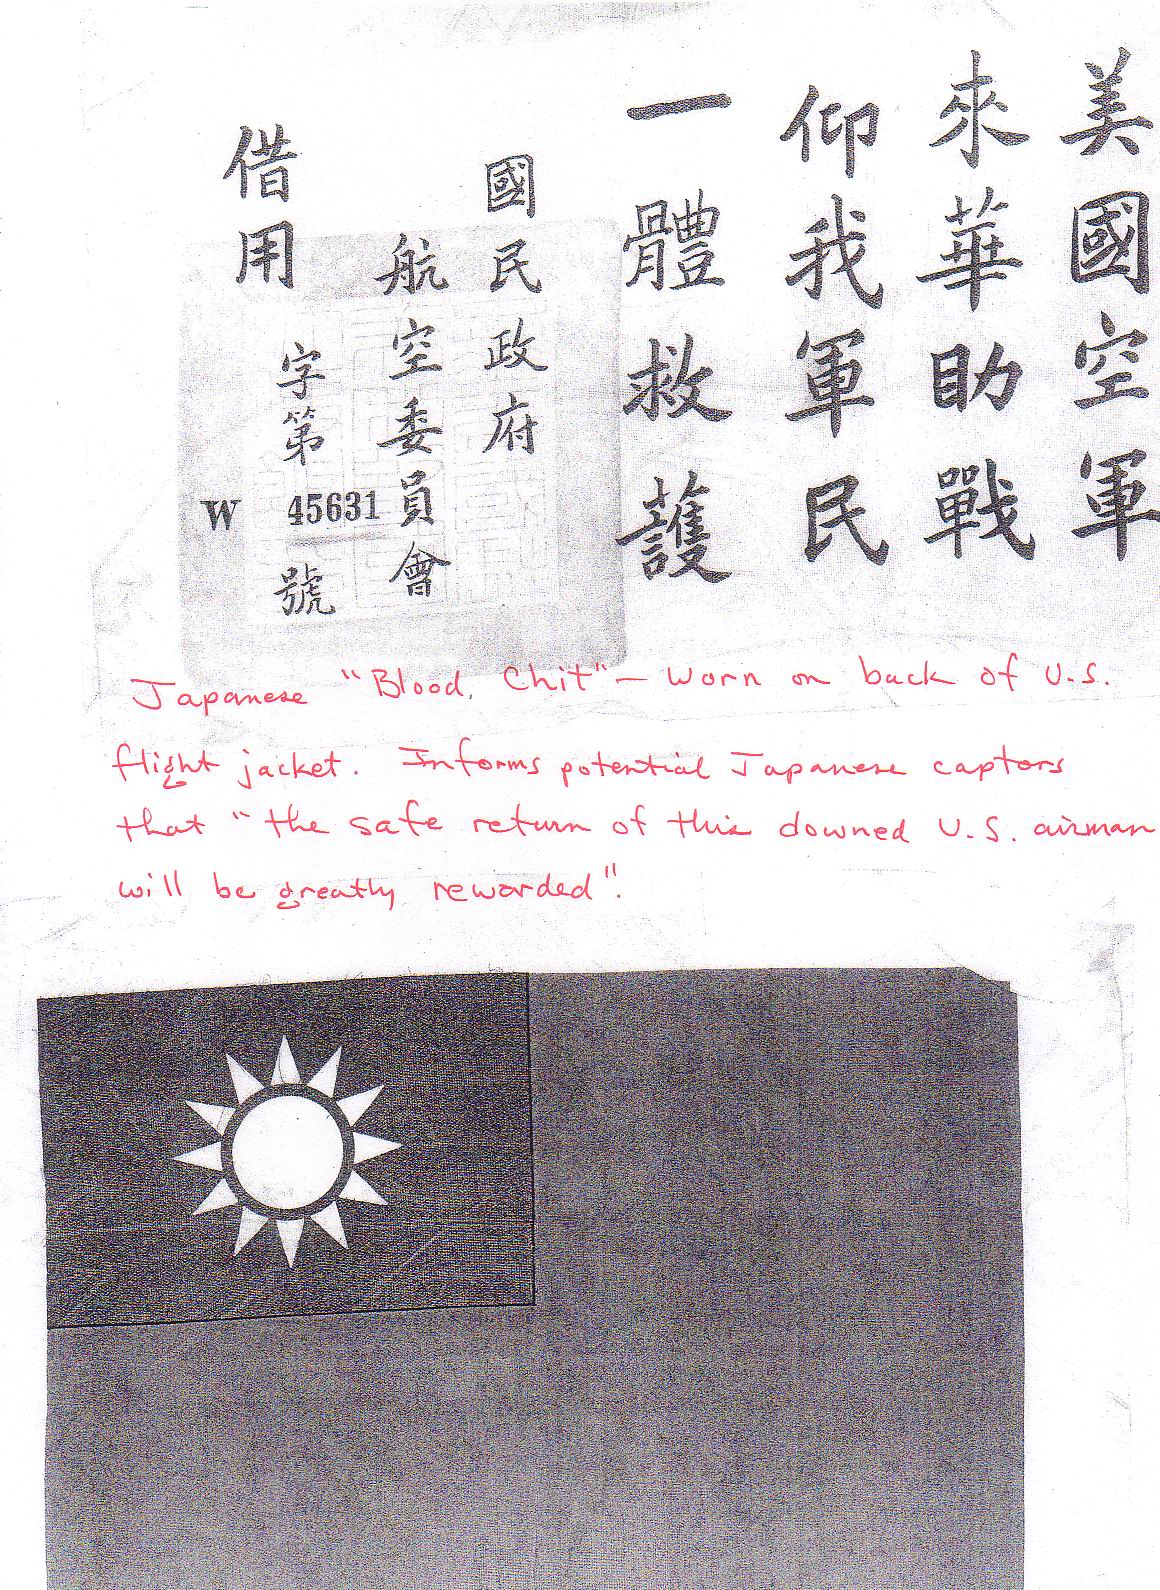 美國空軍
來華助戰
仰我軍民
一體救護
國民政府
航空委員會
字第 45631 號
W
借用
Japanese "Blood Chit" — Worn on back of U.S.
flight jacket. Informs potential Japanese captors
that "the safe return of this downed U.S. airman
will be greatly rewarded".